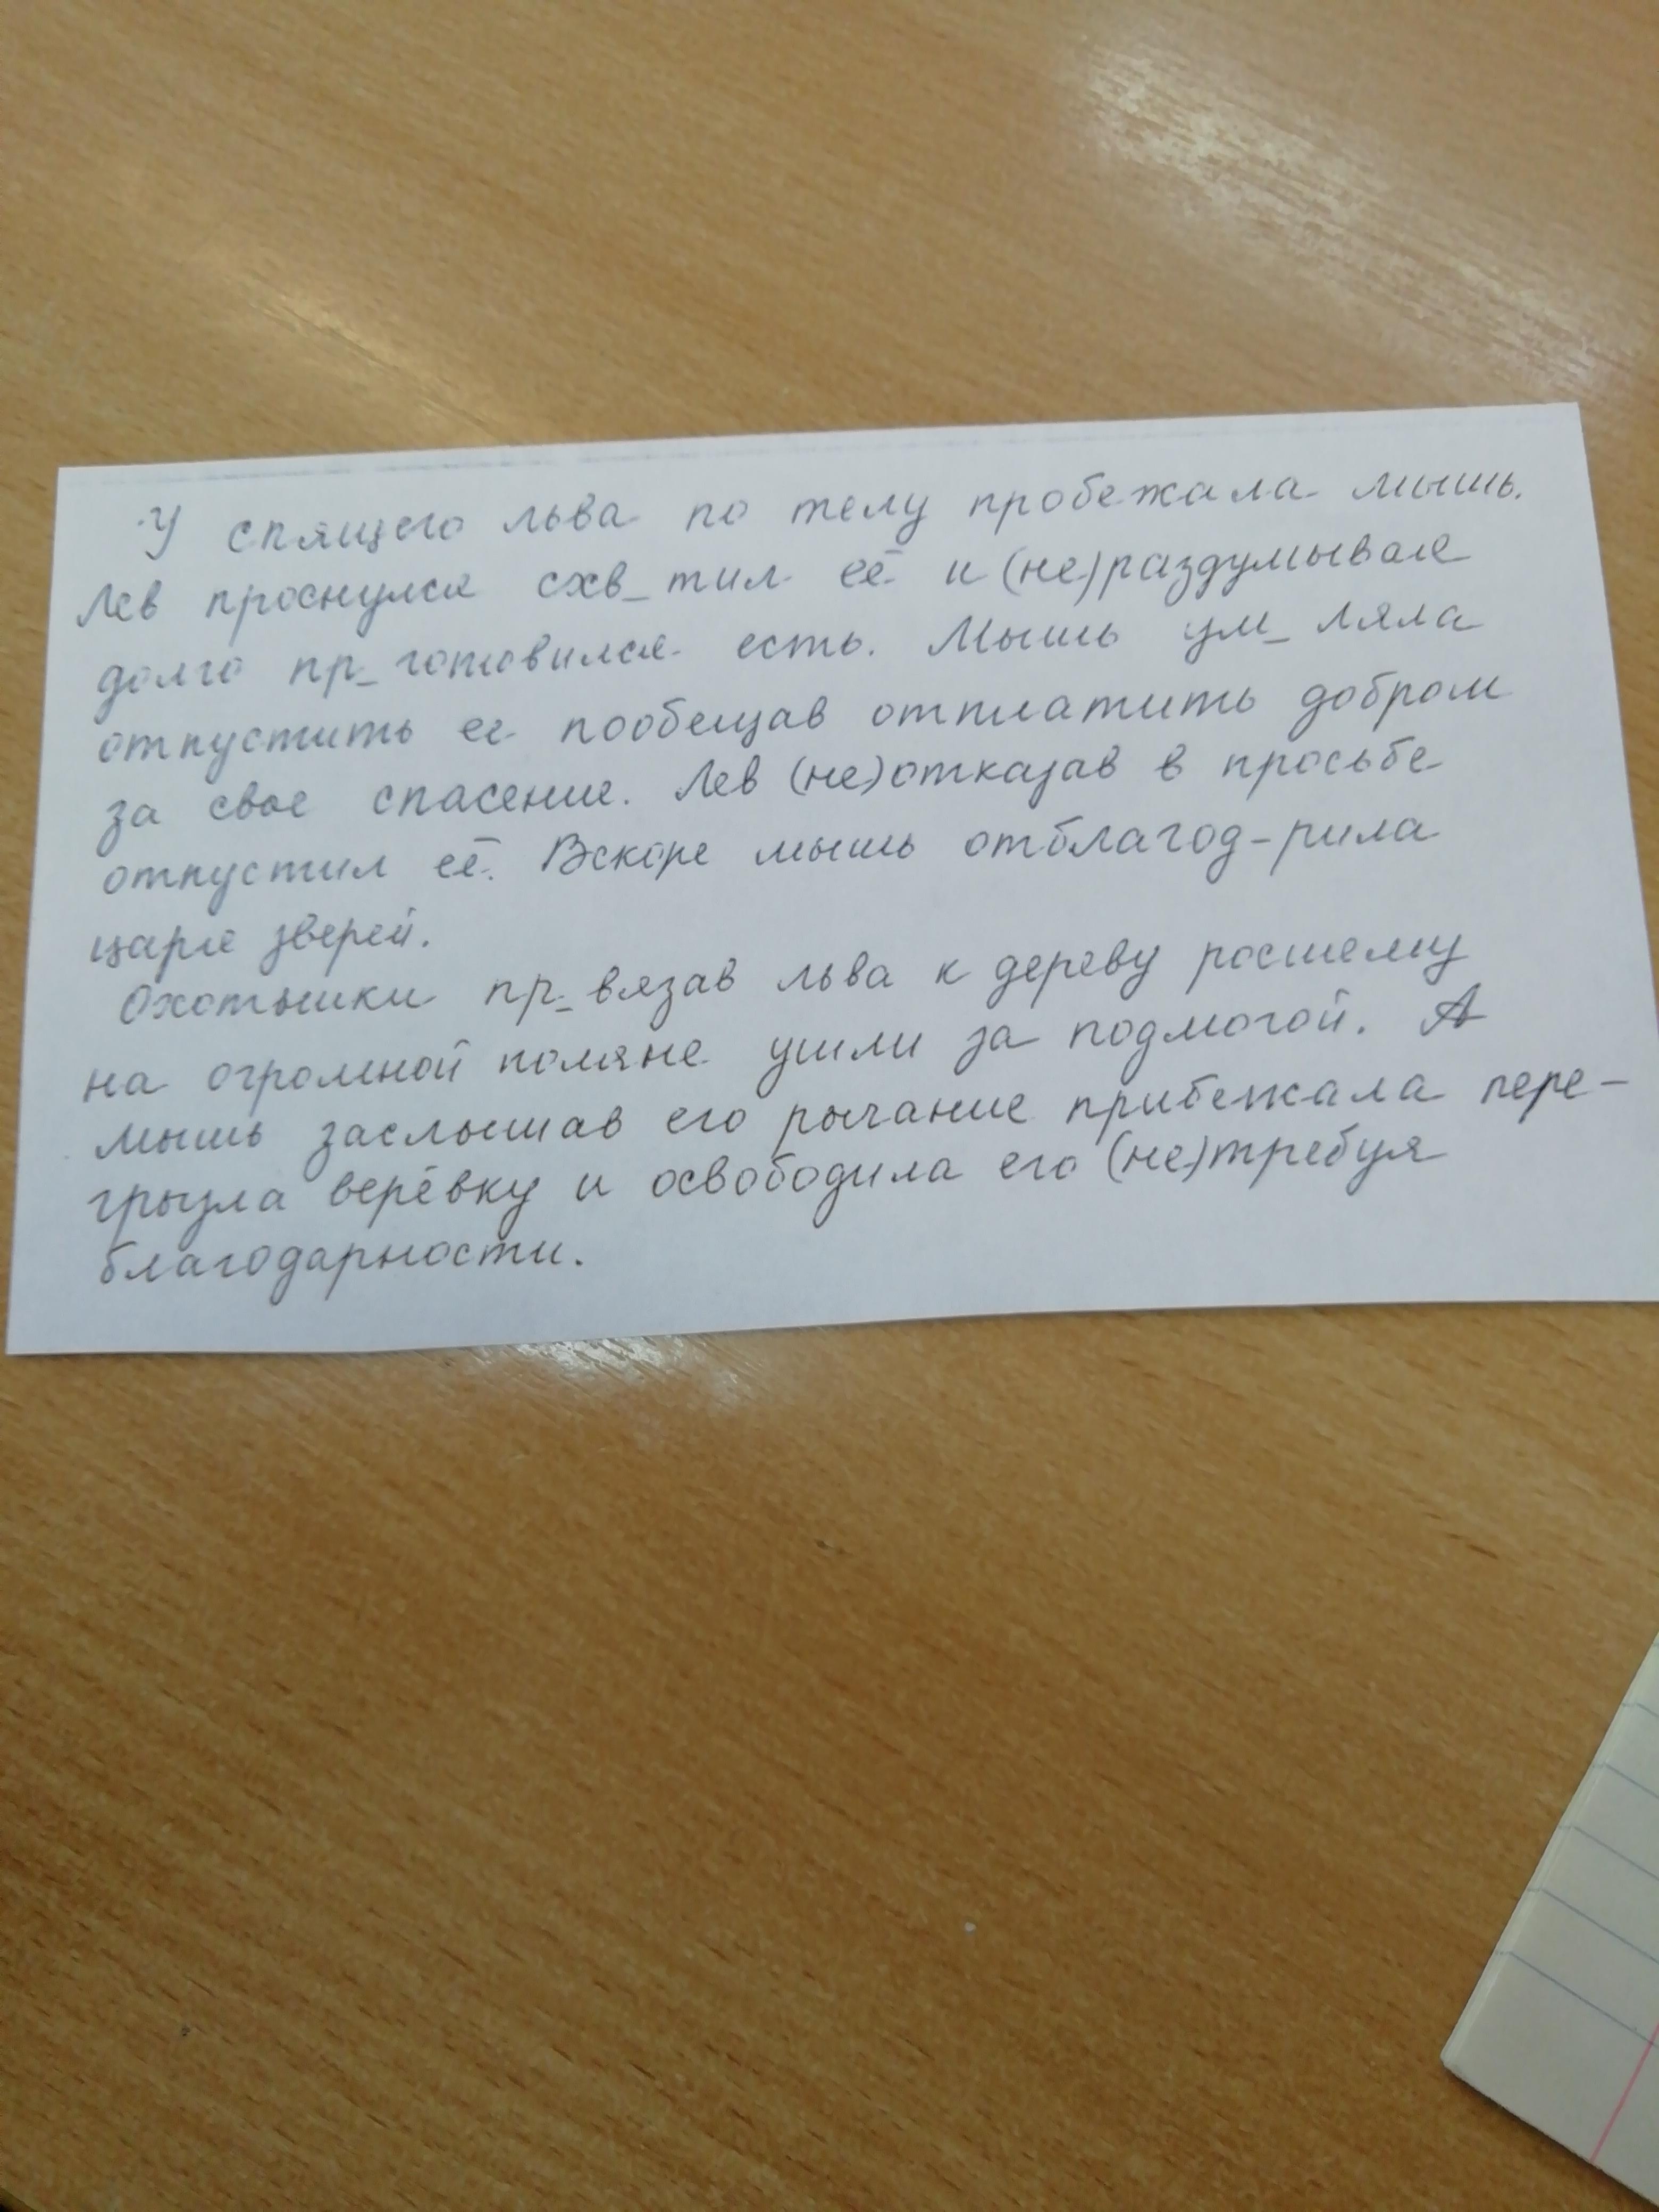 У спящего льва по телу пробежала мышь.
Лев проснулся схв_тил её и (не)раздумывая
долго пр_готовился есть. Мышь ум_ляла
отпустить ее пообещав отплатить добром
за свое спасение. Лев (не)отказав в просьбе
отпустил её. Вскоре мышь отблагод-рила
царя зверей.
Охотники пр_вязав льва к дереву росшему
на огромной поляне ушли за подмогой. А
мышь заслышав его рычание прибежала пере-
грызла верёвку и освободила его (не)требуя
благодарности.